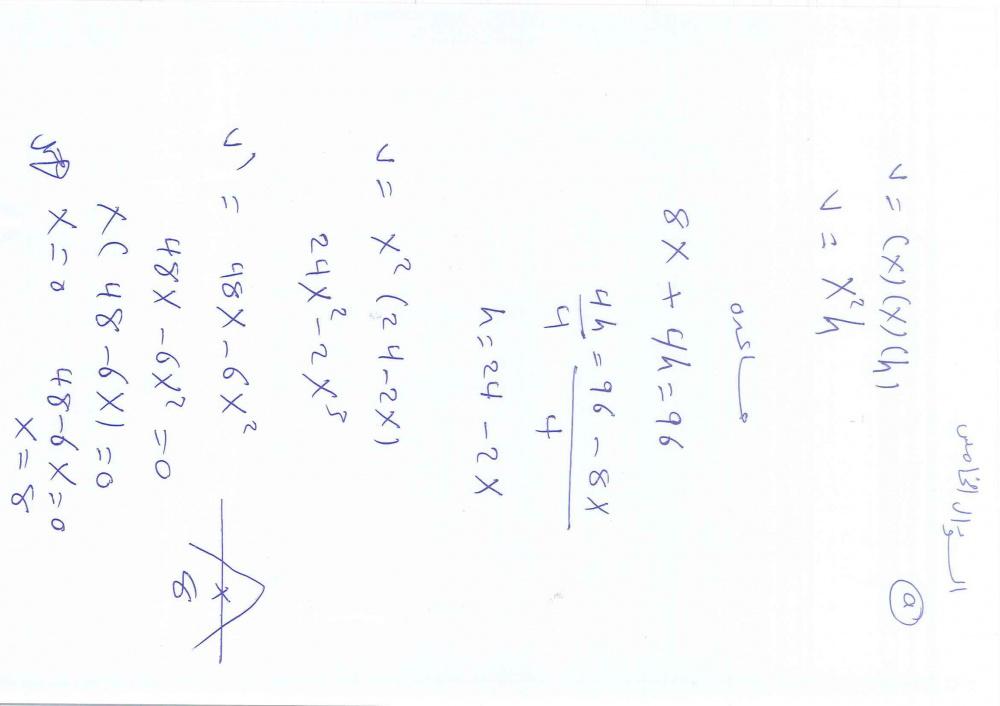 السؤال الخامس
(a)
v = (x)(x)(h)
v = x²h
8x + 4h = 96
4h/4 = 96 - 8x/4
h = 24 - 2x
v = x² (24 - 2x)
24x² - 2x³
v' = 48x - 6x²
48x - 6x² = 0
x (48 - 6x) = 0
x = 0 48 - 6x = 0
x = 8
x
8